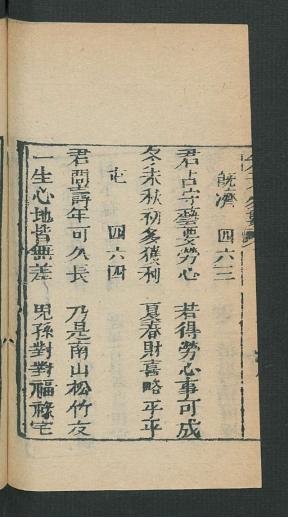 既濟 四六三
君占字藝要勞心 若得勞心事可成
冬末秋初多獲利 夏春財喜略平平
屯 四六四
君問壽年可久長 乃是南山松竹友
一生心地皆無差 兒孫對對福祿宅